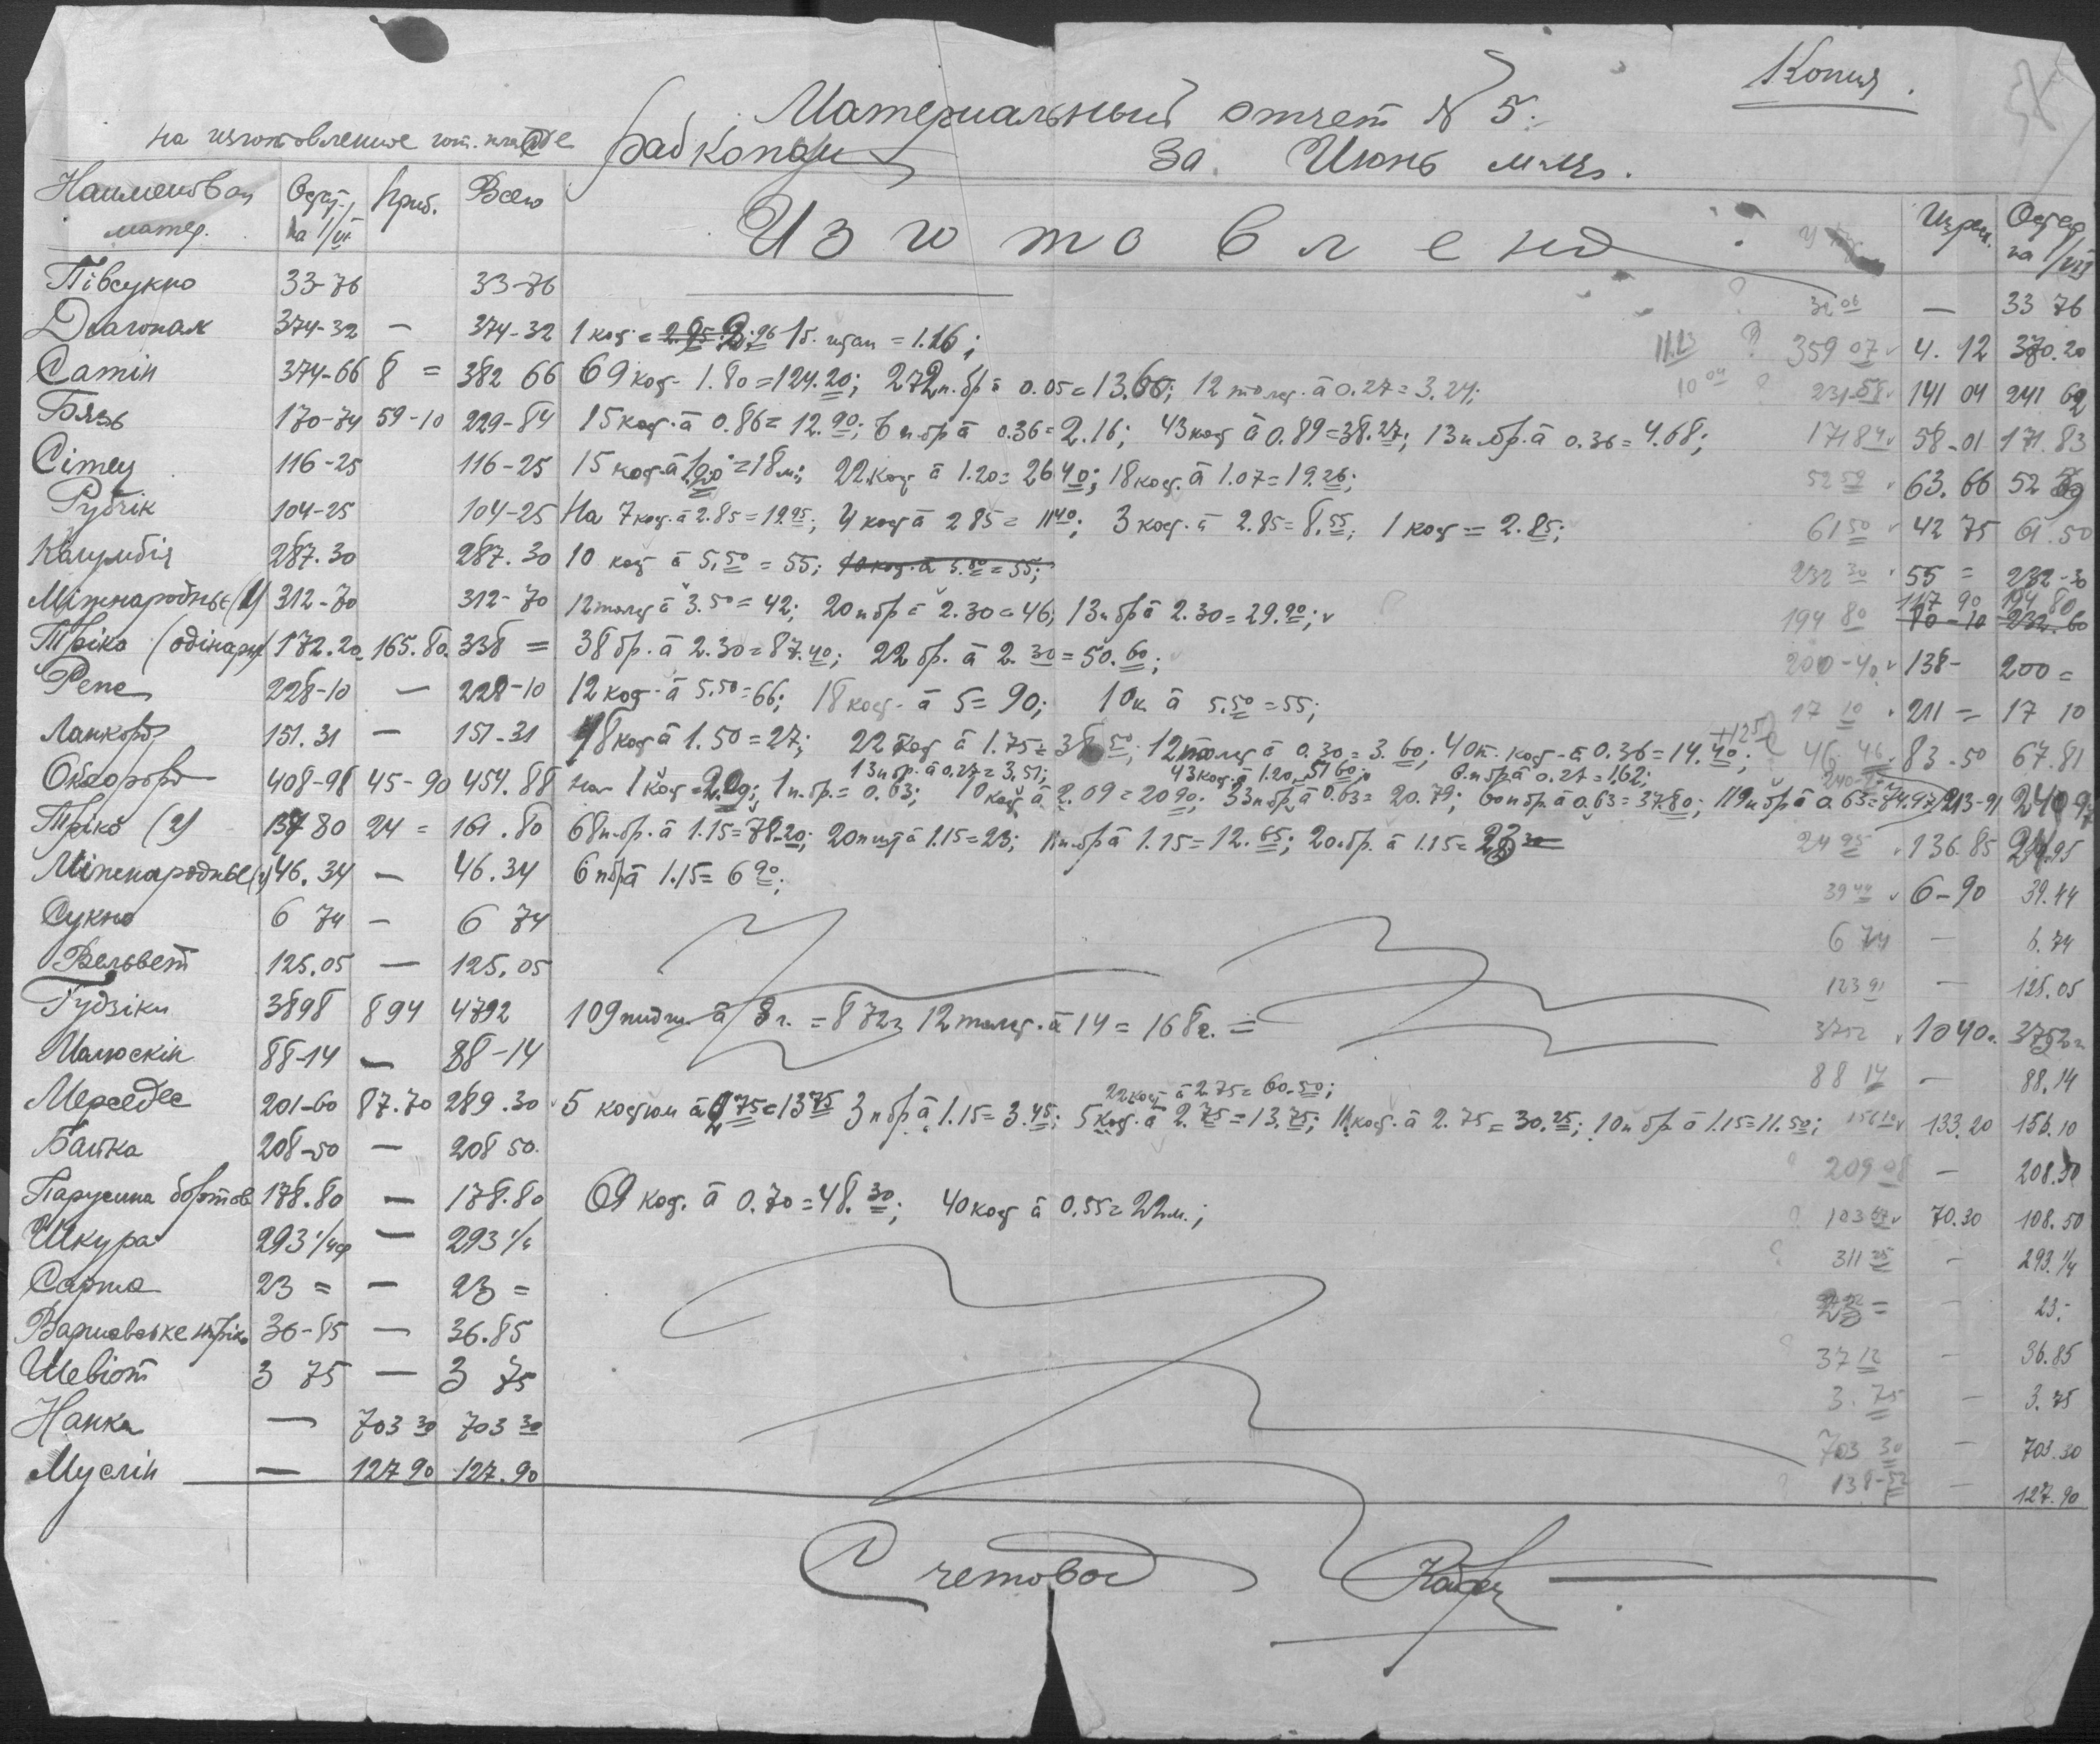 Копия.
Материальный отчет № 5.
на изготовление гот. платье
За Июнь м-ць.
Наименован матер. Остат. на 1/VI Приб. Всего Изготовлено Израс. Остат на 1/VII
Півсукно 33-76 33-76 — 33 76
Діагонал 374-32 — 374-32 1 кос = 1 б. штан = 1.16; 359 07 4.12 370.20
Сатін 374-66 8 = 382 66 69 кос- 1.80=124.20; 272 п.бр à 0.05=13.60; 12 толст. à 0.27=3.24; 141 04 241 62
Бязь 170-74 59-10 229-84 15 кос. à 0.86=12.90; 6 п.бр à 0.36=2.16; 43 кос à 0.89=38.27; 13 п.бр. à 0.36=4.68; 171 84 58-01 171.83
Сітец 116-25 116-25 15 кос. à =18 м.; 22 кос à 1.20=26 40; 18 кос. à 1.07=19.26; 52 59 63.66 52 59
Рубчік 104-25 104-25 На 7 кос. à 2.85=19.95; 4 кос à 2 85=11 40; 3 кос. à 2.85=8.55; 1 кос = 2.85; 61 50 42 75 61.50
Калумбія 287.30 287.30 10 кос à 5.50=55; 10 кос. à 5.50=55; 232 30 55 = 232-30
Міжнародньє (1) 312-70 312-70 12 толст à 3.50=42; 20 п бр = 2.30=46; 13 п бр à 2.30=29.90; 194 80 117 90 194 80
80-10 232.60
Тріко (одінарн 172.20 165.80 338 = 38 бр. à 2.30=87.40; 22 бр. à 2.30=50.60; 200-40 138- 200 =
Репс 228-10 — 228-10 12 кос. à 5.50=66; 18 кос. à 5=90; 10 к à 5.50=55; 17 10 211 = 17 10
Ланкорд 151.31 — 151-31 18 кос à 1.50=27; 22 кос à 1.75=38 50; 12 толст à 0.30=3.60; 40 п. кос. à 0.36=14.40; +125 46 46 83-50 67.81
13 п бр. à 0.27=3.51; 43 кос. à 1.20=51 60; 6 п бр à 0.27=1.62;
Оксфорд 408-98 45-90 454.88 на 1 кос=2.09; 1 п.бр.=0.63; 10 кос à 2.09=20 90; 33 п бр à 0.63=20.79; 60 п бр. à 0.63=37.80; 119 п бр à 0.63=74.97; 213-91 240-97
Тріко (2) 137 80 24 = 161.80 68 п.бр. à 1.15=78.20; 20 п шт à 1.15=23; 11 п.бр à 1.15=12.65; 20 бр. à 1.15=23 24 95 136.85 24.95
Міжнародньє (2) 46.34 — 46.34 6 п бр à 1.15=6 90; 39 44 6-90 39.44
Сукно 6 74 — 6 74 6 74 — 6.74
Вельвет 125.05 — 125.05 123 91 — 125.05
Гудзіки 3898 894 4792 109 пидж. à 8 г. = 872 г 12 толст. à 14 = 168 г. = 3752 1040 г. 3752 г
Малюскін 88-14 — 88-14 88 14 — 88.14
22 кост à 2.75=60.50;
Мерседес 201-60 87.70 289.30 5 костюм à 2 75=13 75 3 п бр à 1.15=3.45; 5 кос. à 2.75=13.75; 11 кос. à 2.75=30.25; 10 п бр à 1.15=11.50; 156 10 133.20 156.10
Байка 208-50 — 208 50. 209 08 — 208.50
Парусина бортов 178.80 — 178.80 69 кос. à 0.70=48.30; 40 кос à 0.55=22 м.; 103 67 70.30 108.50
Шкура 293 1/4 — 293 1/4 311 25 - 293.1/4
Саржа 23 = — 23 = 23 = - 23.-
Варшавське тріко 36-85 — 36.85 37 12 - 36.85
Шевіот 3 75 — 3 75 3.75 — 3.75
Нанка — 703 30 703 30 703 30 — 703.30
Муслін — 127 90 127.90 138-52 — 127.90
Счетовод